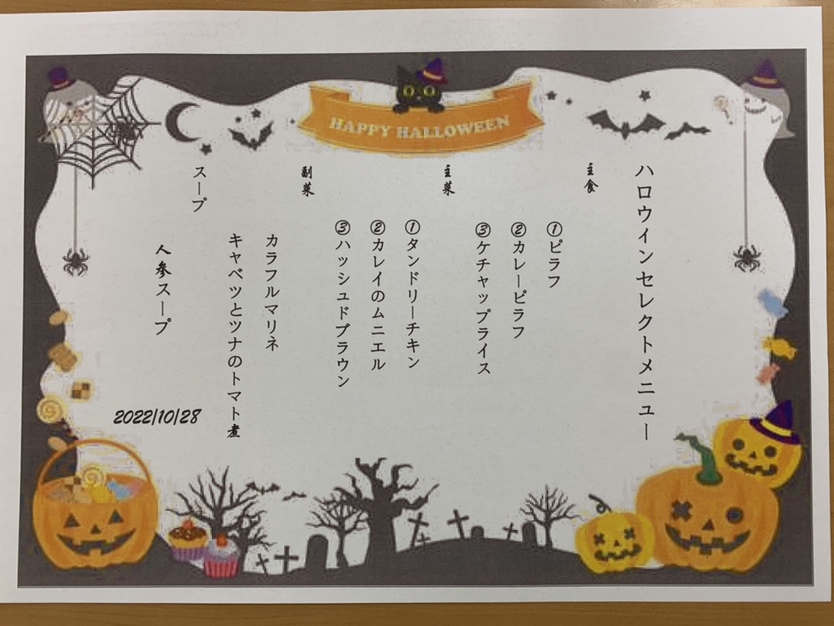 HAPPY HALLOWEEN
ハロウィンセレクトメニュー
主食
①ピラフ
②カレーピラフ
③ケチャップライス
主菜
①タンドリーチキン
②カレイのムニエル
③ハッシュドブラウン
副菜
カラフルマリネ
キャベツとツナのトマト煮
スープ
人参スープ
2022/10/28